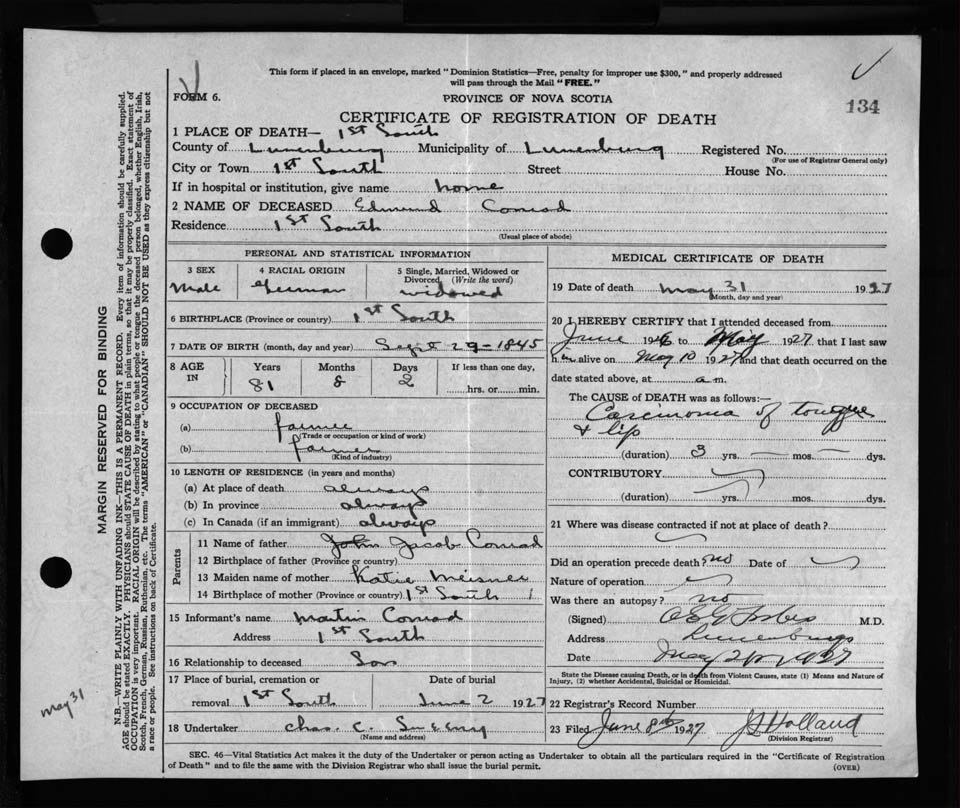 This form if placed in an envelope, marked "Dominion Statistics—Free, penalty for improper use $300," and properly addressed
will pass through the Mail "FREE."
FORM 6.
PROVINCE OF NOVA SCOTIA
134
CERTIFICATE OF REGISTRATION OF DEATH
1 PLACE OF DEATH— 1st South
County of Lunenburg Municipality of Lunenburg Registered No.
(For use of Registrar General only)
City or Town 1st South Street House No.
If in hospital or institution, give name home
2 NAME OF DECEASED Edmund Conrad
Residence 1st South
(Usual place of abode)
PERSONAL AND STATISTICAL INFORMATION
3 SEX 4 RACIAL ORIGIN 5 Single, Married, Widowed or
Divorced, (Write the word)
Male German widowed
6 BIRTHPLACE (Province or country) 1st South
7 DATE OF BIRTH (month, day and year) Sept 29-1845
8 AGE IN Years Months Days If less than one day,
81 8 2 hrs. or min.
9 OCCUPATION OF DECEASED
(a) farmer
(Trade or occupation or kind of work)
(b) farmer
(Kind of industry)
10 LENGTH OF RESIDENCE (in years and months)
(a) At place of death always
(b) In province always
(c) In Canada (if an immigrant) always
Parents
11 Name of father John Jacob Conrad
12 Birthplace of father (Province or country)
13 Maiden name of mother Katie Meisner
14 Birthplace of mother (Province or country) 1st South
15 Informant's name Martin Conrad
Address 1st South
16 Relationship to deceased Son
17 Place of burial, cremation or Date of burial
removal 1st South June 2 1927
18 Undertaker Chas. C.
(Name and address)
MEDICAL CERTIFICATE OF DEATH
19 Date of death May 31 1927
(Month, day and year)
20 I HEREBY CERTIFY that I attended deceased from
June 1926 to May 1927 that I last saw
him alive on May 10 1927 and that death occurred on the
date stated above, at a m.
The CAUSE of DEATH was as follows:
Carcinoma of tongue
& lip
(duration) 3 yrs. — mos. — dys.
CONTRIBUTORY
(duration) yrs. mos. dys.
21 Where was disease contracted if not at place of death?
Did an operation precede death? no Date of
Nature of operation
Was there an autopsy? no
(Signed) Forbes M.D.
Address Lunenburg
Date May 1927
State the Disease causing Death, or in death from Violent Causes, state (1) Means and Nature of
Injury, (2) whether Accidental, Suicidal or Homicidal.
22 Registrar's Record Number
23 Filed June 8th 1927 Holland
(Division Registrar)
SEC. 46—Vital Statistics Act makes it the duty of the Undertaker or person acting as Undertaker to obtain all the particulars required in the "Certificate of Registration
of Death" and to file the same with the Division Registrar who shall issue the burial permit.
(OVER)
MARGIN RESERVED FOR BINDING
N.B.—WRITE PLAINLY WITH UNFADING INK—THIS IS A PERMANENT RECORD. Every item of information should be carefully supplied.
AGE should be stated EXACTLY. PHYSICIANS should STATE CAUSE OF DEATH in plain terms, so that it may be properly classified. Exact statement of
OCCUPATION is very important. RACIAL ORIGIN will be described by stating to what people or tongue the deceased person belonged, whether English, Irish,
Scotch, French, German, Russian, Ruthenian, etc. The terms "AMERICAN" or "CANADIAN" SHOULD NOT BE USED as they express citizenship but not
a race or people. See instructions on back of Certificate.
May 31